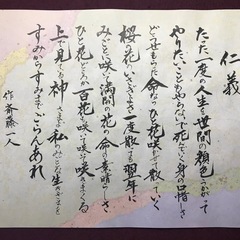 仁義
たった一度の人生を世間の顔色うかがって
やりたいこともやらないで死んでく身の口惜しさ
どうせもらった命ならひと花咲かせて散っていく
桜の花のいさぎよさ一度散っても翌年に
みごと咲いた満開の花の命の素晴らしさ
ひと花どころか百花も咲いて咲いて咲きまくる
上で見てる神さまよ私のみごとな生きざまを
すみからすみまでごらんあれ
作 斎藤一人